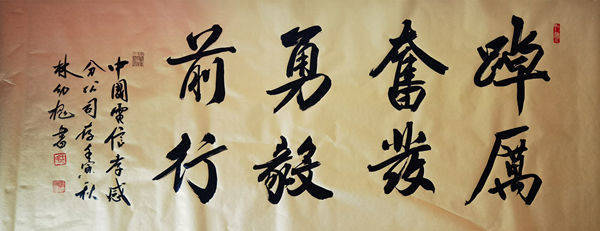 踔厲
奮發
勇毅
前行
中國電信孝感
分公司存壬寅秋
林幼槐書